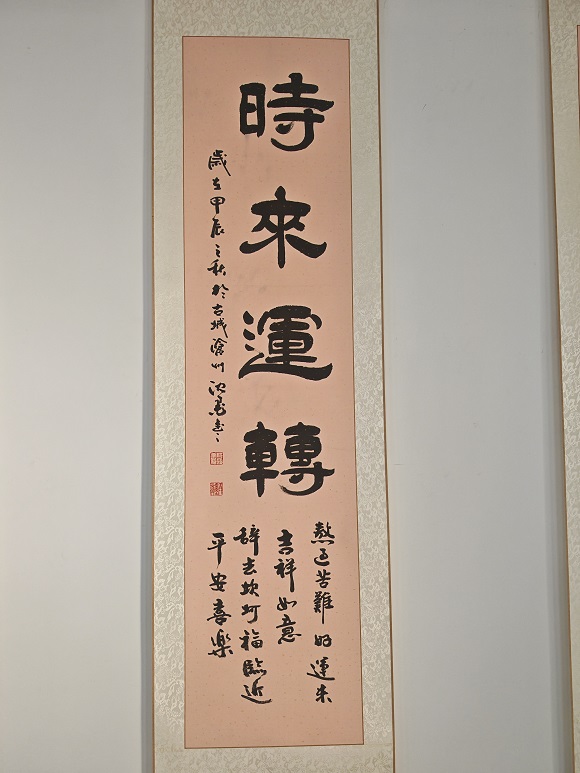 時來運轉
熬過苦難好運來
吉祥如意
辞去坎坷福臨近
平安喜樂
歲在甲辰之秋於古城滄州